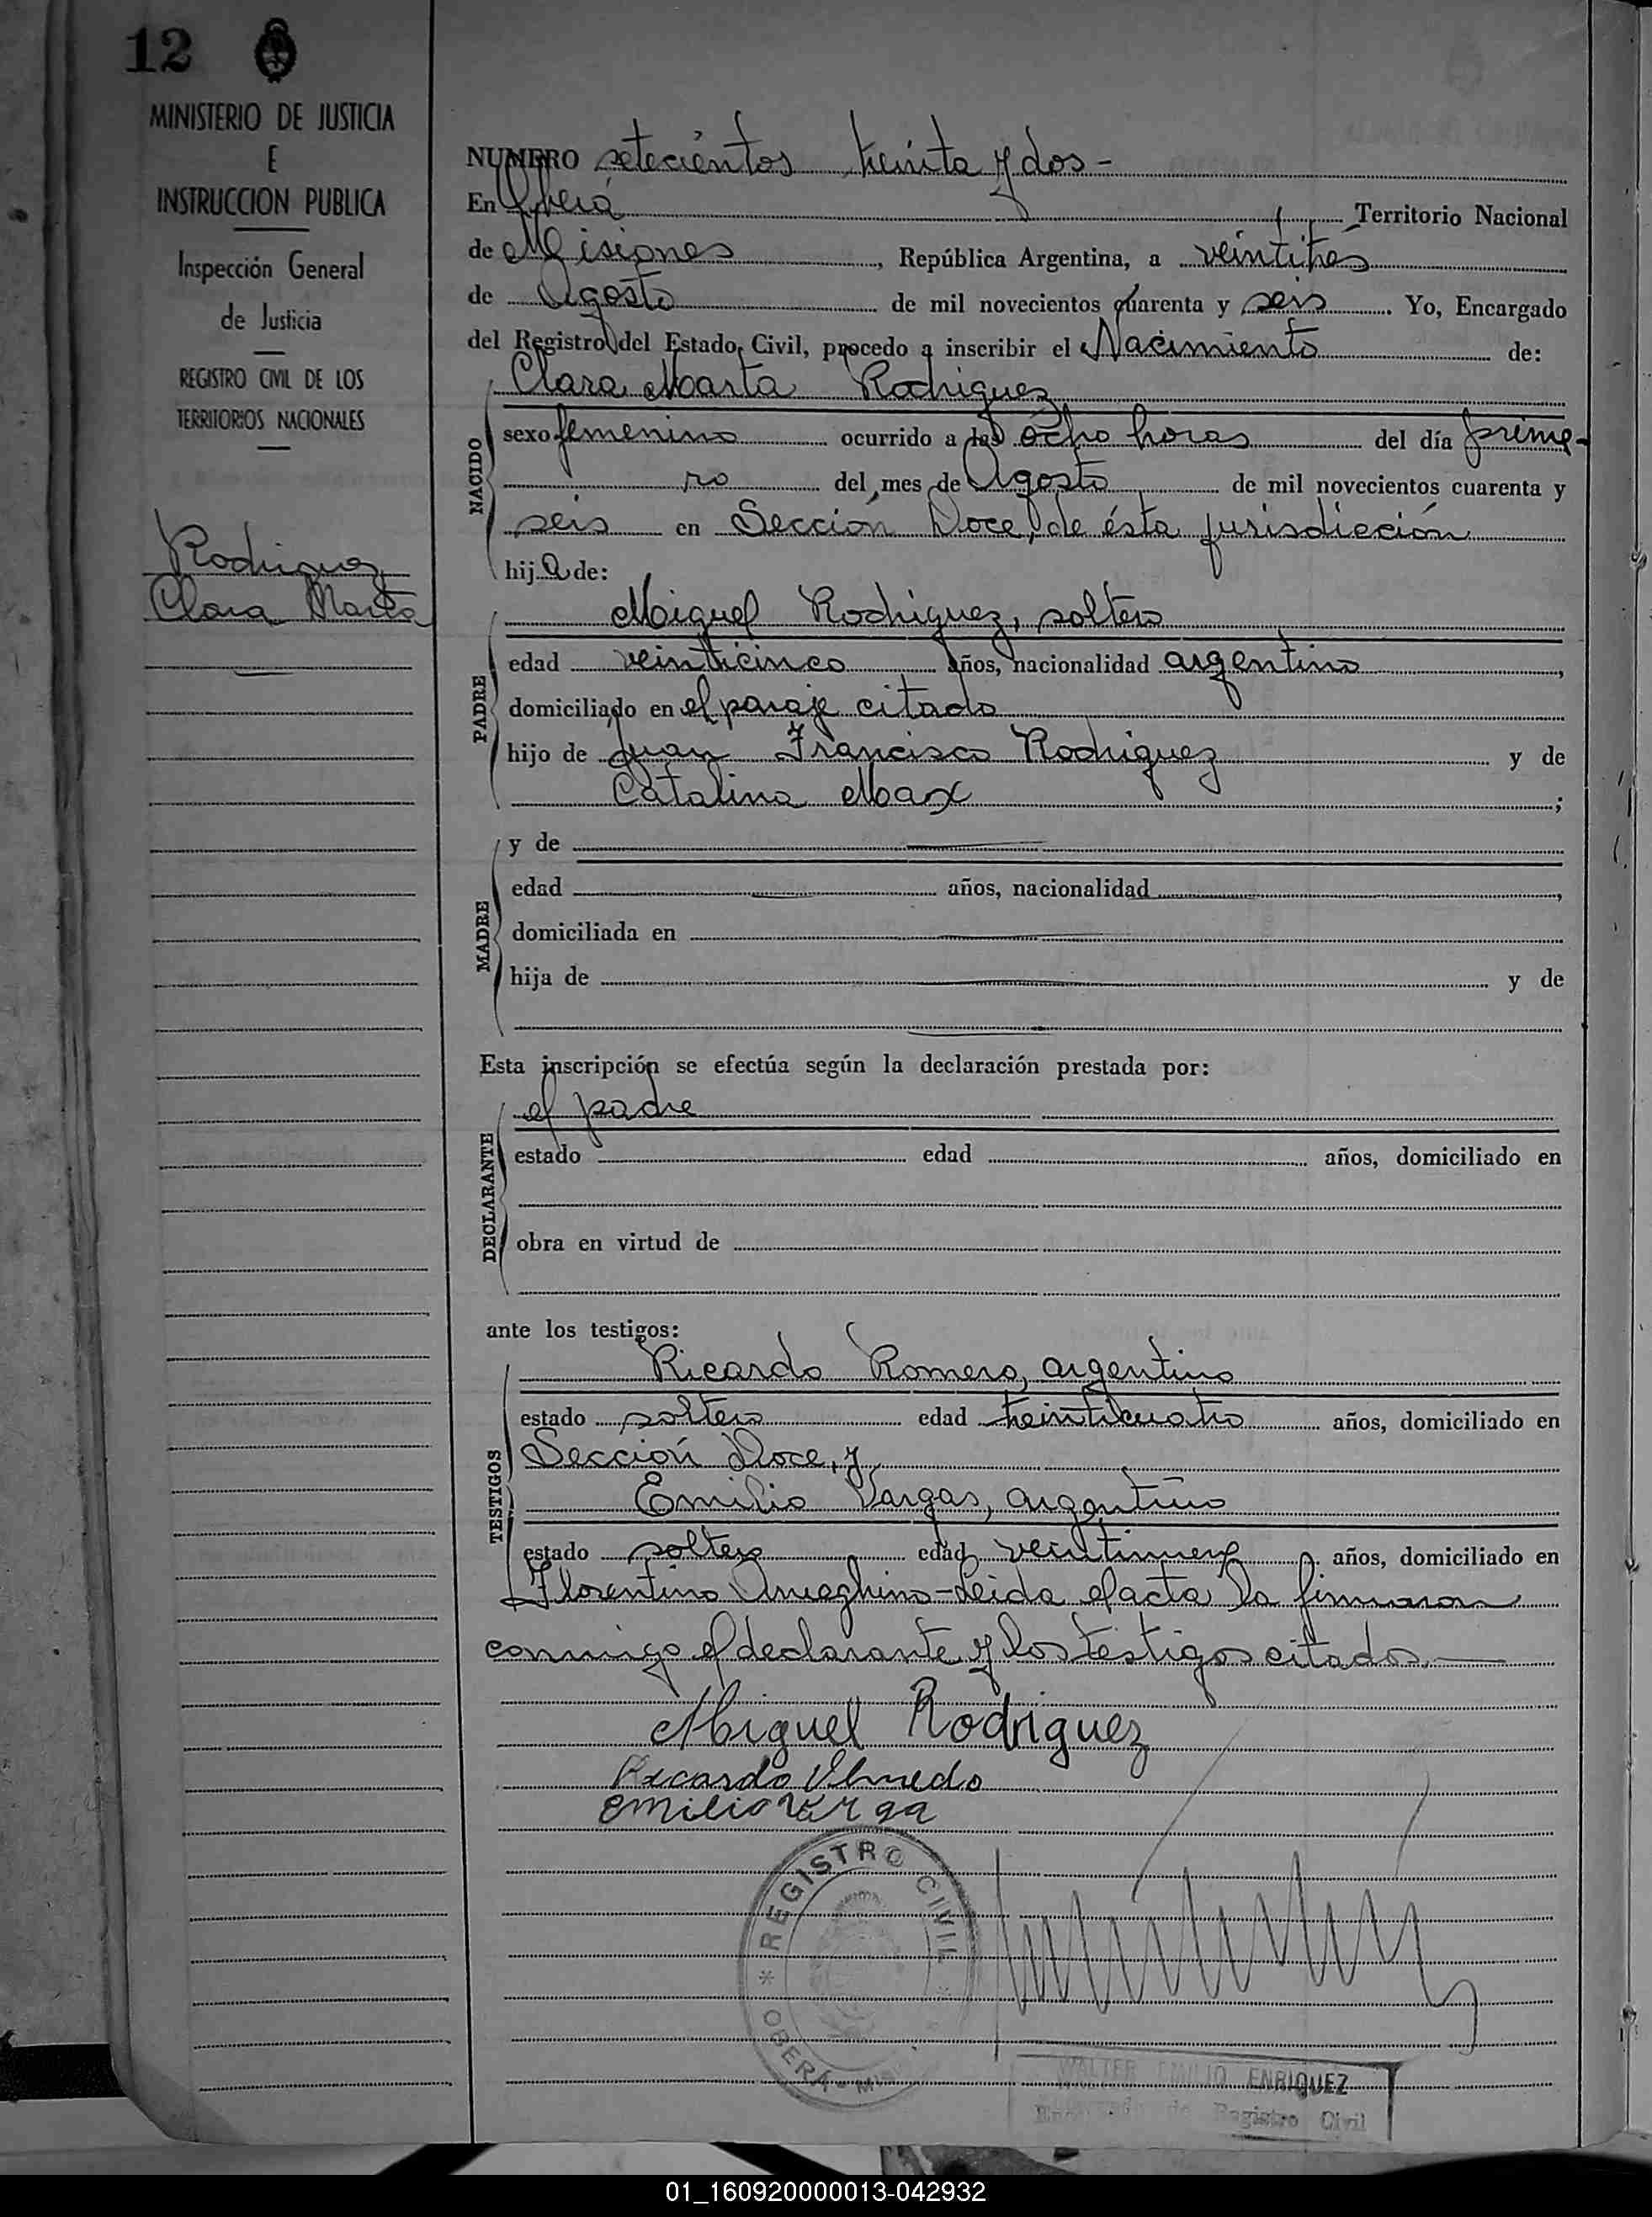 12
MINISTERIO DE JUSTICIA
E
INSTRUCCION PUBLICA
Inspección General
de Justicia
REGISTRO CIVIL DE LOS
TERRITORIOS NACIONALES
Rodriguez
Clara Marta
NUMERO setecientos treinta y dos -
En Oberá Territorio Nacional
de Misiones, República Argentina, a veintitrés
de Agosto de mil novecientos cuarenta y seis. Yo, Encargado
del Registro del Estado Civil, procedo a inscribir el Nacimiento de:
NACIDO
Clara Marta Rodriguez
sexo femenino ocurrido a las ocho horas del día prime-
ro del mes de Agosto de mil novecientos cuarenta y
seis en Sección Doce, de ésta jurisdicción
hija de:
PADRE
Miguel Rodriguez, soltero
edad veinticinco años, nacionalidad argentino,
domiciliado en el paraje citado
hijo de Juan Francisco Rodriguez y de
Catalina Max;
MADRE
y de
edad años, nacionalidad,
domiciliada en
hija de y de
Esta inscripción se efectúa según la declaración prestada por:
DECLARANTE
el padre
estado edad años, domiciliado en
obra en virtud de
ante los testigos:
TESTIGOS
Ricardo Romero, argentino
estado soltero edad años, domiciliado en
Sección Doce, y
Emilio Vargas, argentino
estado soltero edad veintinueve años, domiciliado en
Florentino Ameghino-Leida el acta la firmaron
conmigo el declarante y los testigos citados.—
Miguel Rodriguez
Ricardo
Emilio Varga
* REGISTRO CIVIL *
OBERÁ - MIS
WALTER EMILIO ENRIQUEZ
de Registro Civil
01_160920000013-042932